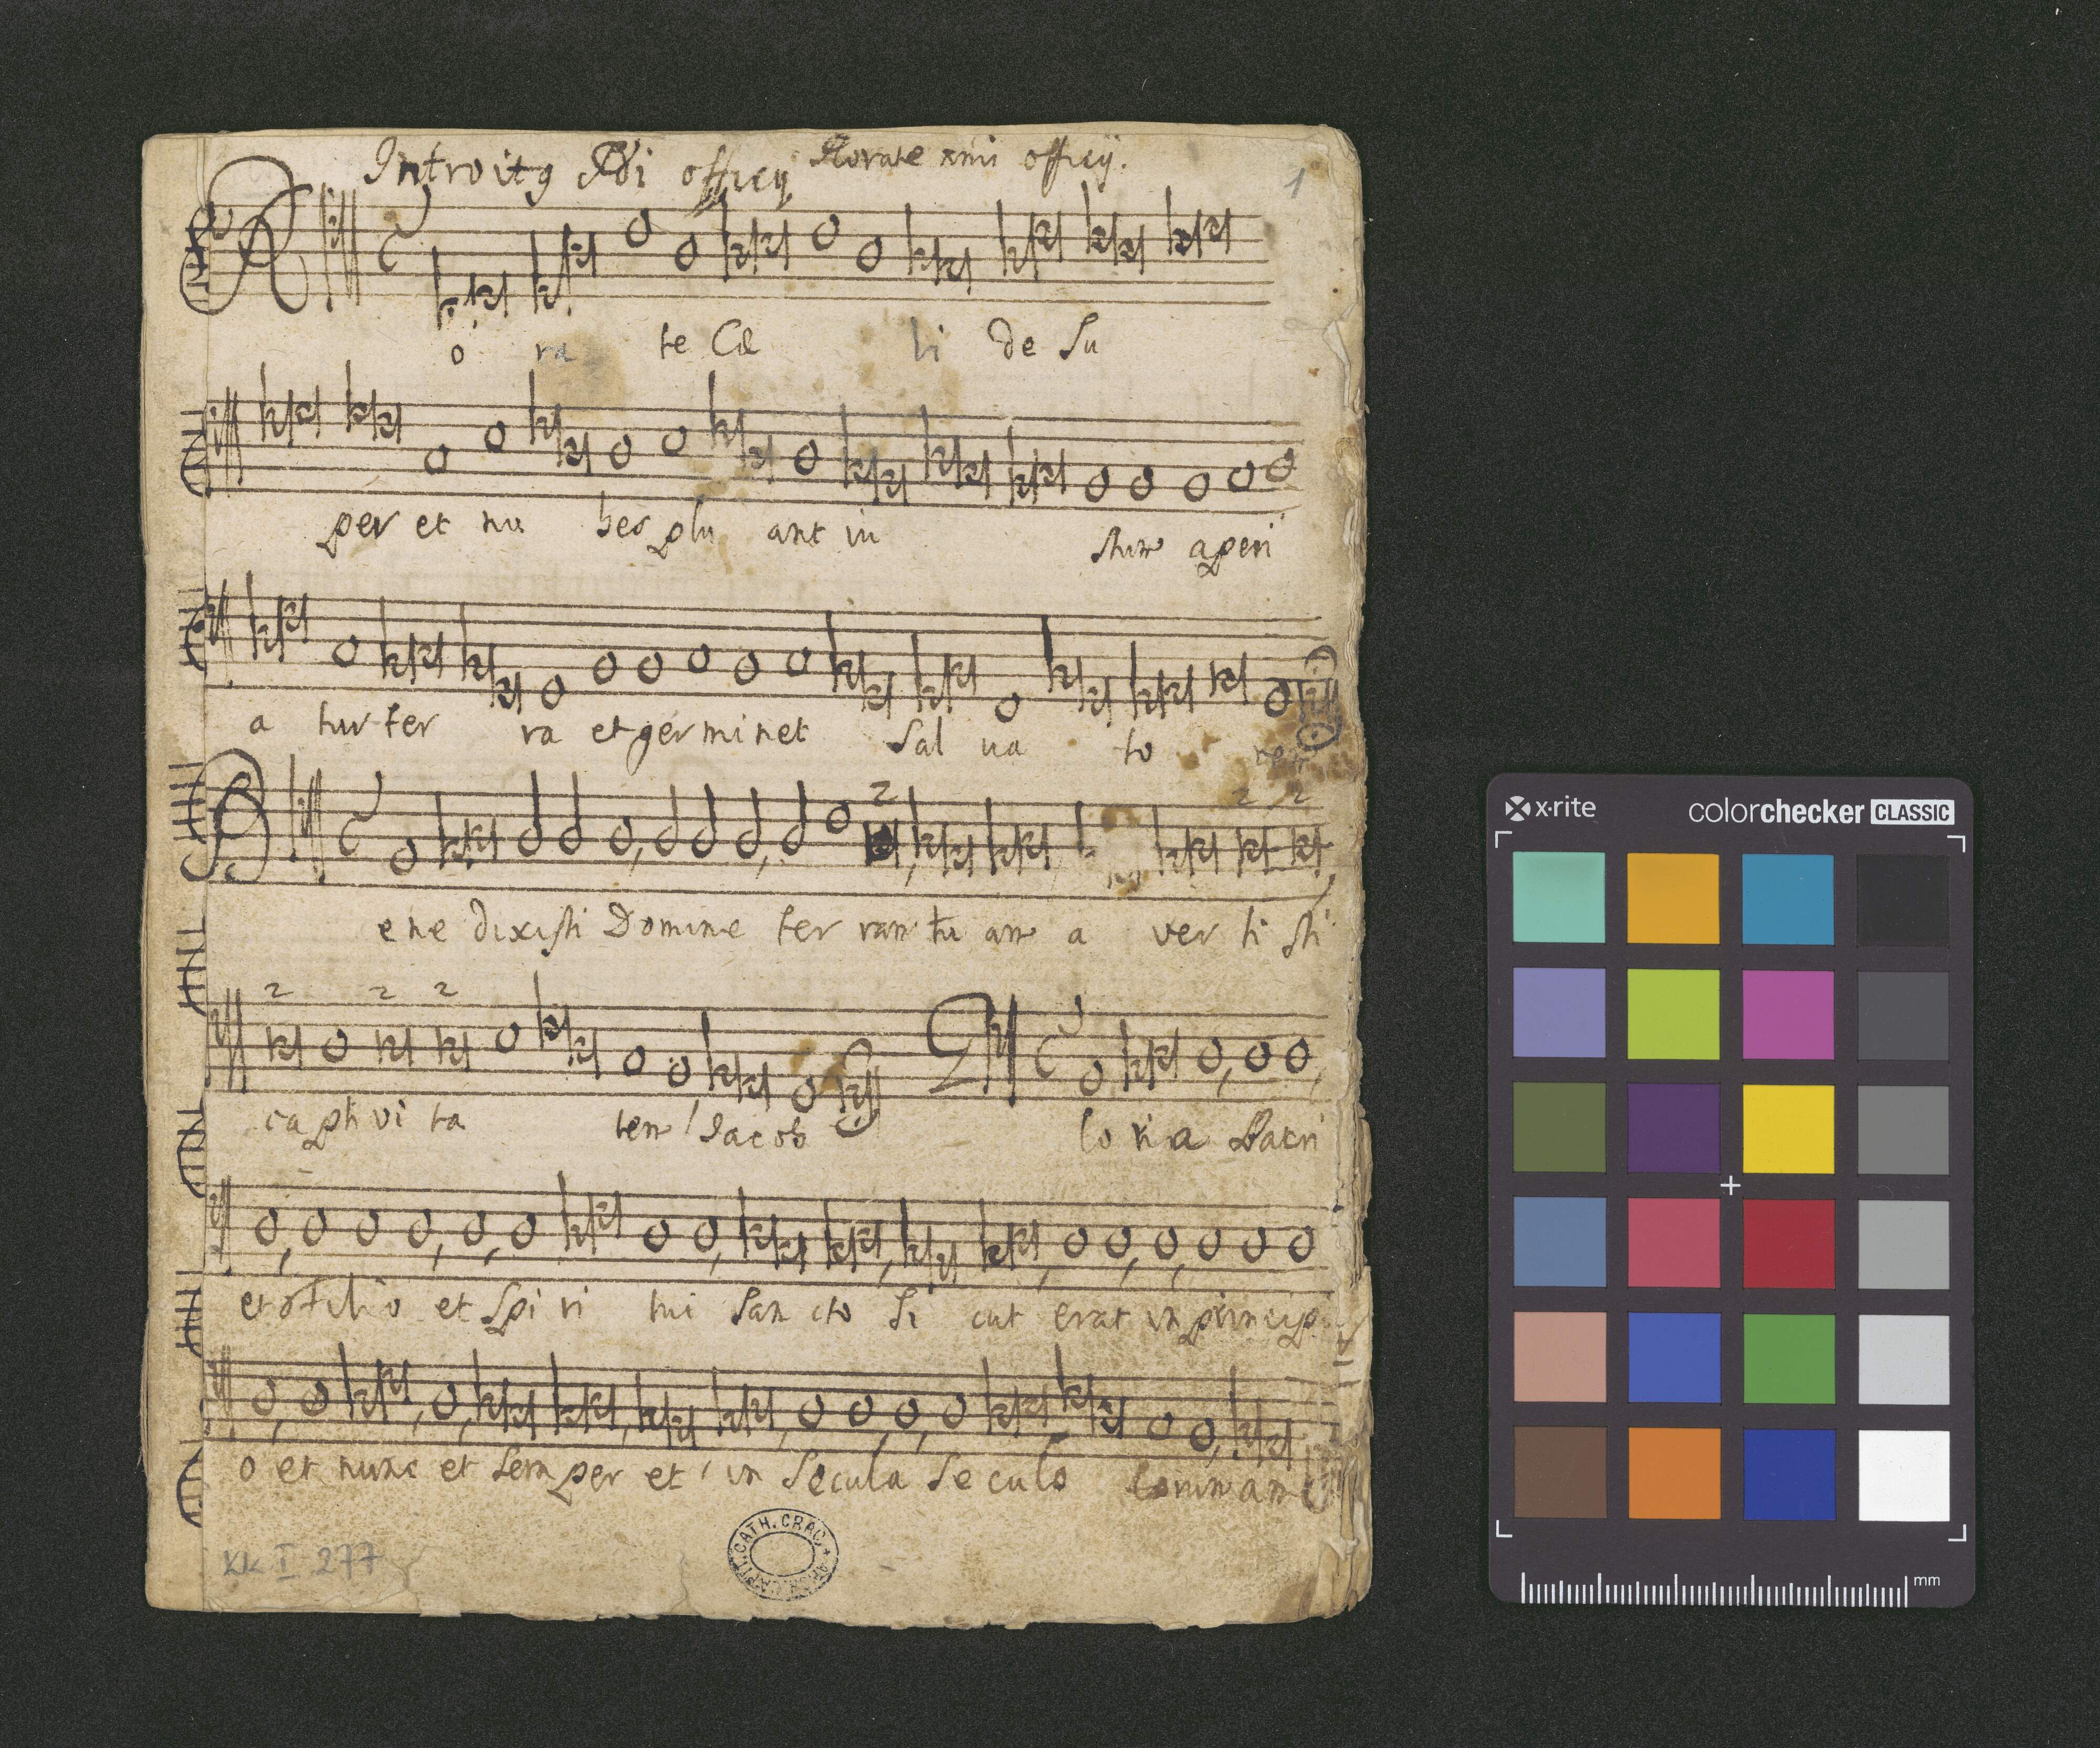 Introitg officy Rorate officy.
1
R o ra te Cæ li de Su
per et nu bes plu ant iu stum aperi
a tur ter ra et germinet Sal ua to rem
B ene dixisti Domine ter ram tu am a ver ti sti
capti vi ta tem Iacob G lo ri a Patri
et Filio et Spi ri tui San cto Si cut erat in principi
o et nunc et semper et in Secula Se culo
KK I 277
CATH. CRAC.
x-rite colorchecker CLASSIC
mm